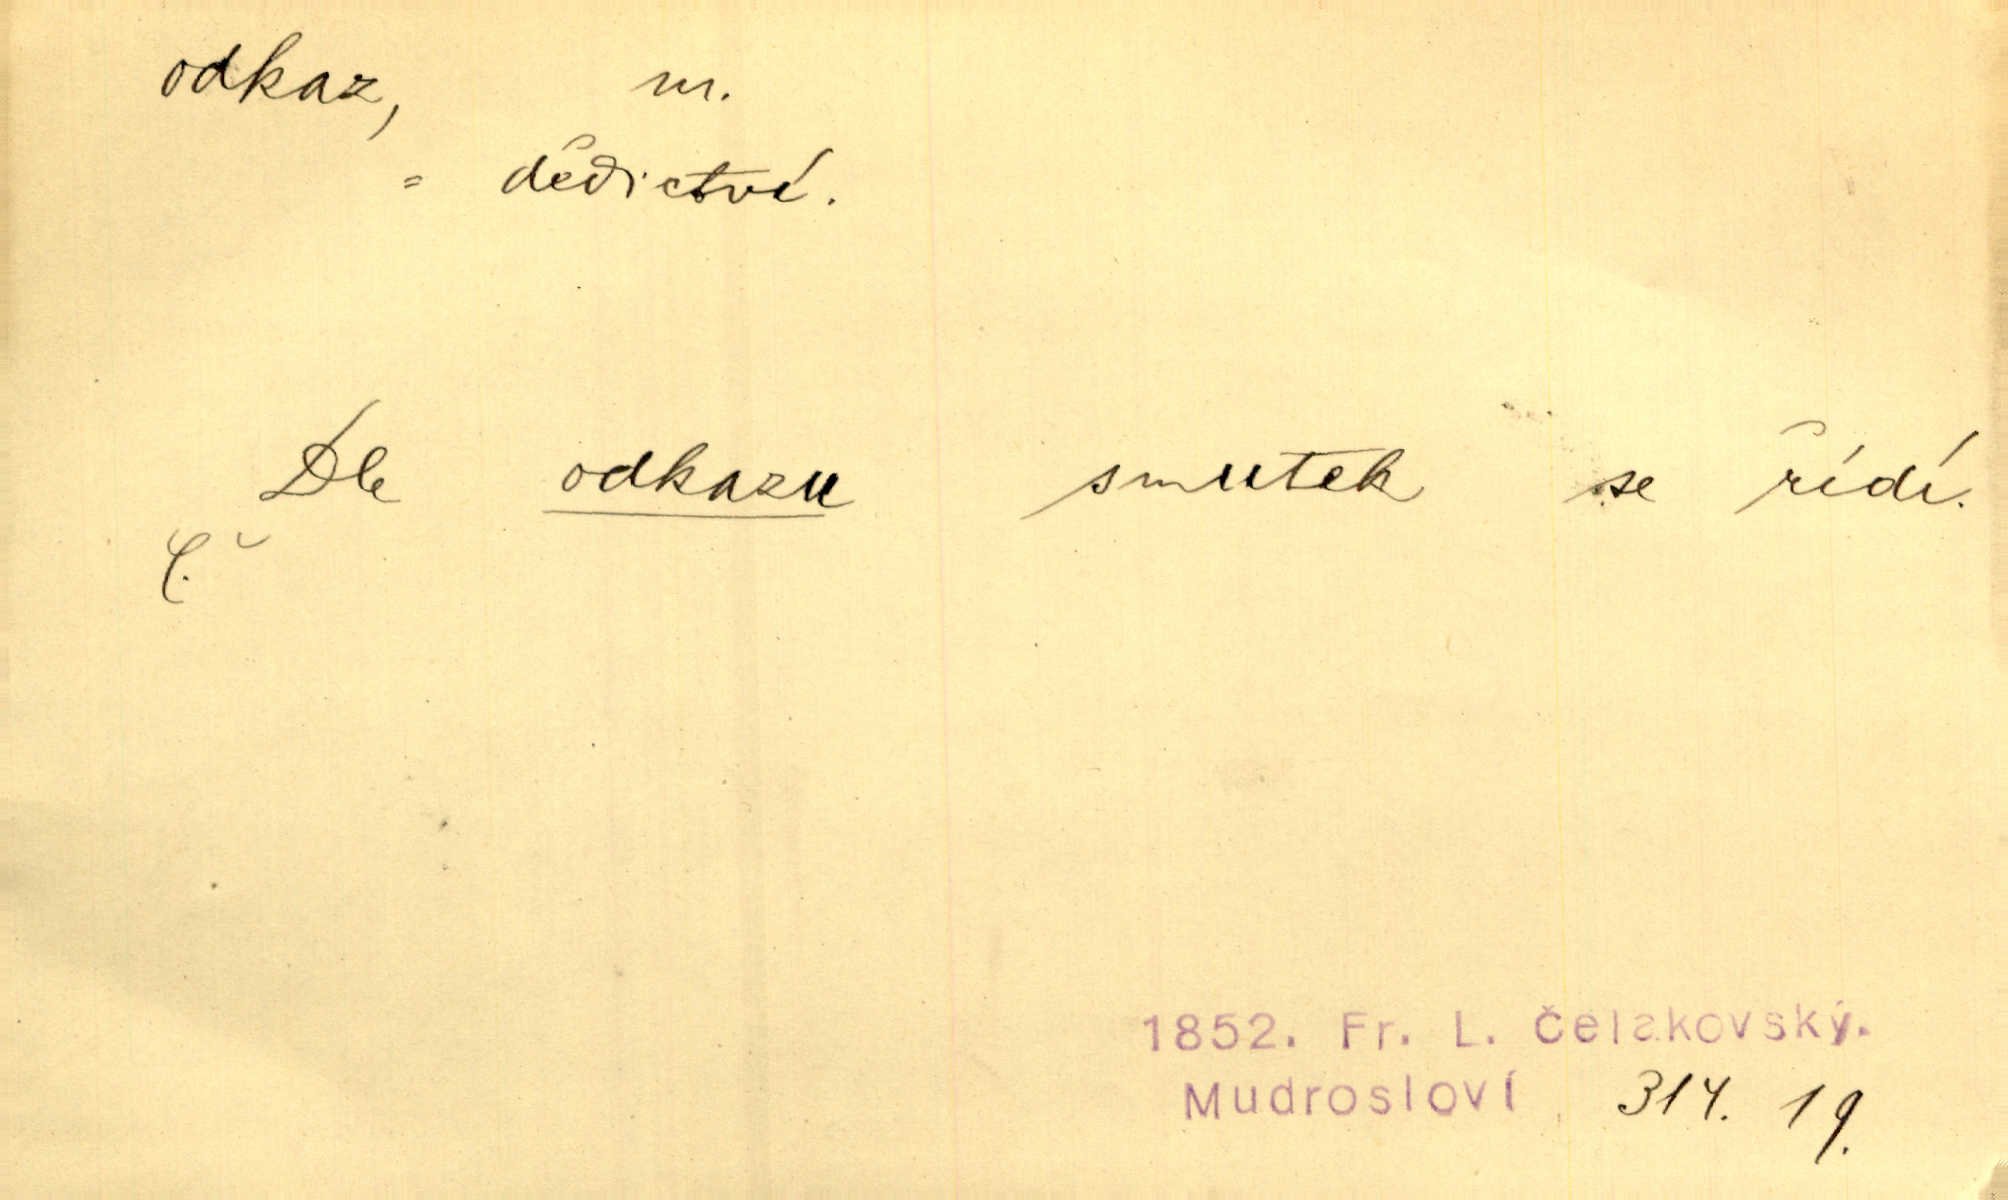 odkaz, m.
= dědictví.
Dle odkazu smutek se řídí.
Č.
1852. Fr. L. Čelakovský.
Mudrosloví 314. 19.